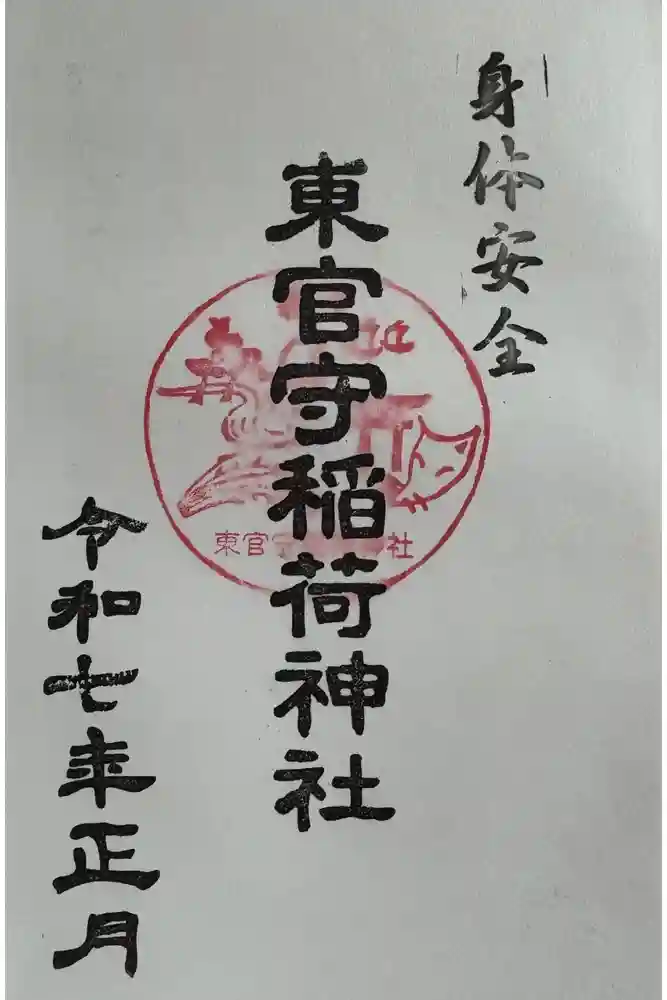 身体安全
東官守稲荷神社
東官 社
令和七年正月